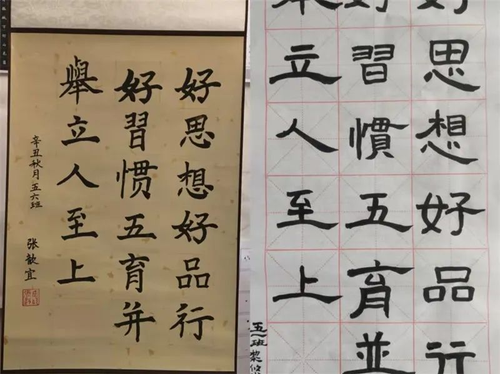 好思想好品行
好習惯五育并
舉立人至上
辛丑秋月五六班
张歆宜
好思想好品行
好習慣五育並
立人至上
五一班